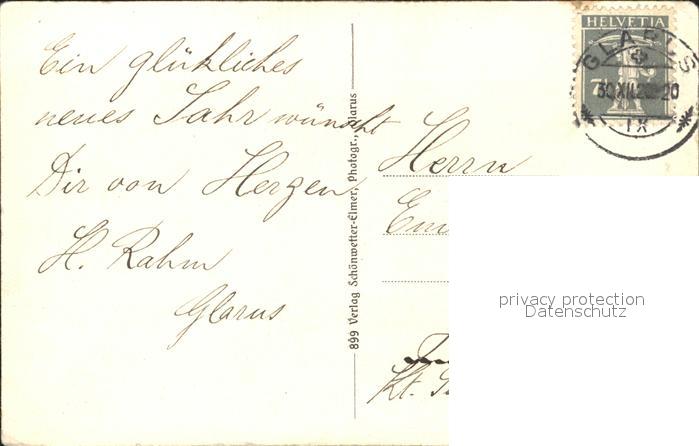 Ein glükliches
neues Jahr wünscht
Dir von Herzen
H. Rahm
Glarus
899 Verlag Schönwetter-Elmer, Photogr., Glarus
HELVETIA
GLARUS
IX
Herrn
Kt.
privacy protection
Datenschutz